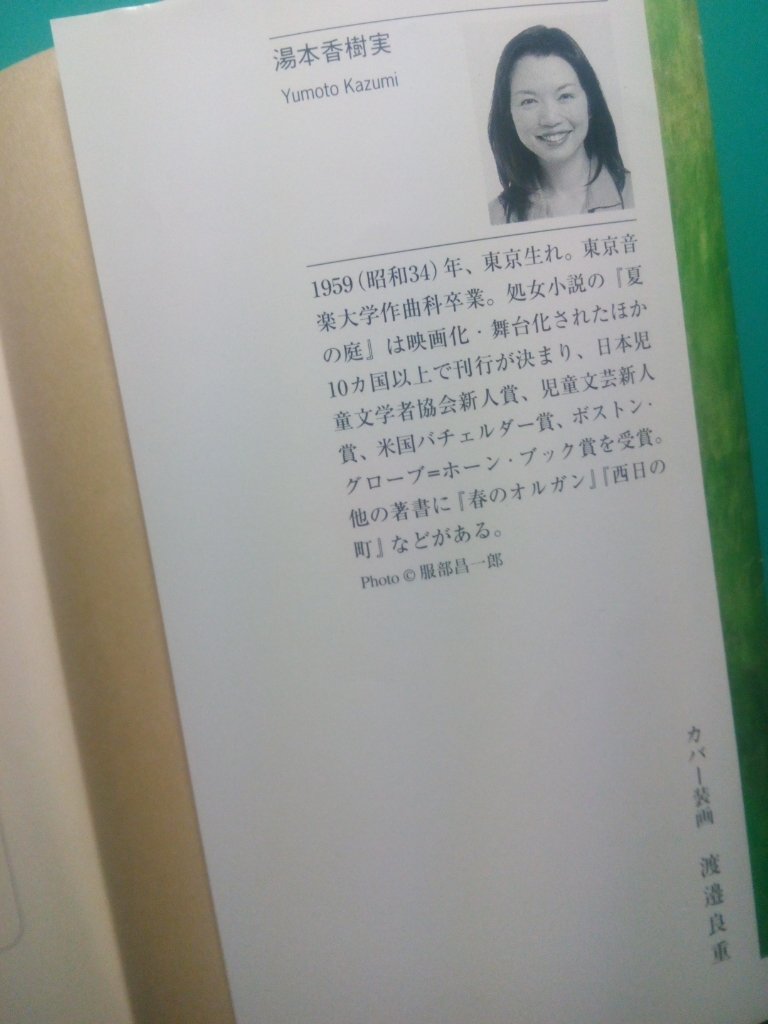 湯本香樹実
Yumoto Kazumi
1959(昭和34)年、東京生れ。東京音
楽大学作曲科卒業。処女小説の『夏
の庭』は映画化・舞台化されたほか
10カ国以上で刊行が決まり、日本児
童文学者協会新人賞、児童文芸新人
賞、米国バチェルダー賞、ボストン・
グローブ=ホーン・ブック賞を受賞。
他の著書に『春のオルガン』『西日の
町』などがある。
Photo © 服部昌一郎
カバー装画 渡邉良重